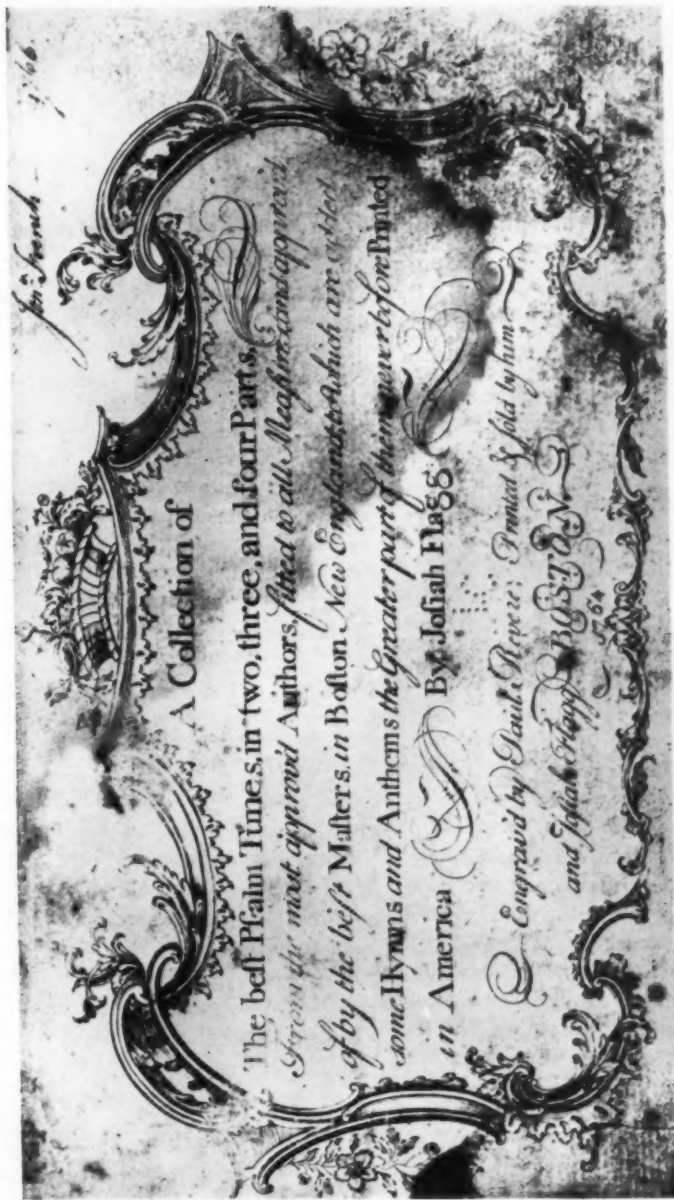 Jonª. French - 1766
A Collection of
The beſt Pſalm Tunes, in two, three, and four Parts,
From the most approv'd Authors, fitted to all Measures, and approv'd
of by the beſt Maſters in Boſton New England, to which are added
some Hymns and Anthems the Greater part of them never before Printed
in America By Joſiah Flagg
Engrav'd by Paul Revere: Printed & ſold by him
and Joſiah Flagg BOSTON.
1764